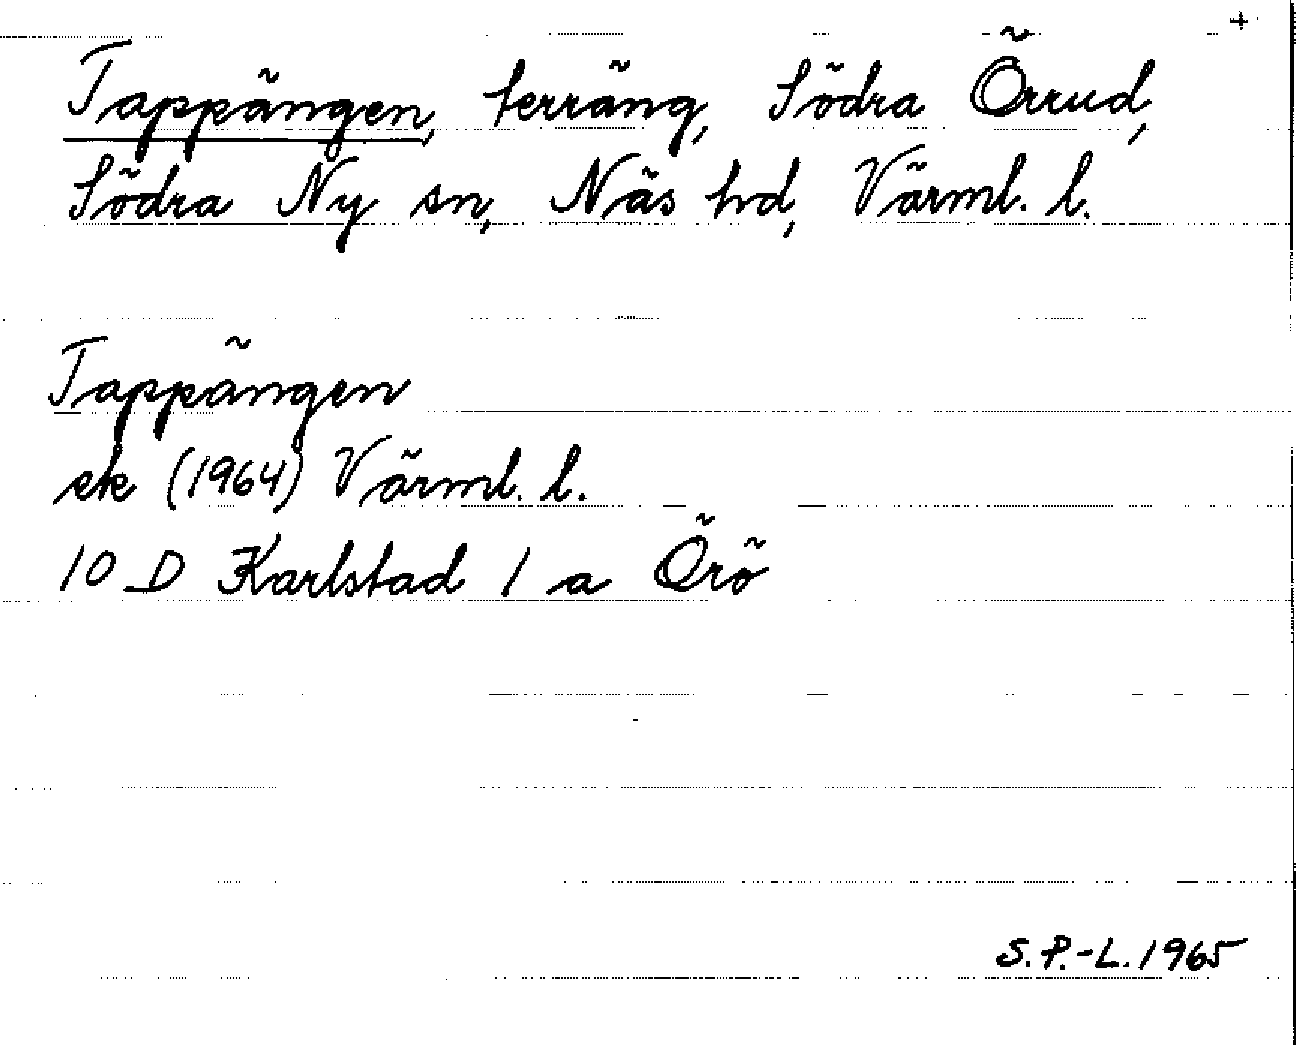 +
Tappängen, terräng, Södra Örrud,
Södra Ny sn, Näs hd, Värml. l.
Tappängen
ek (1964) Värml. l.
10 D Karlstad 1 a Örö
S.P.-L. 1965